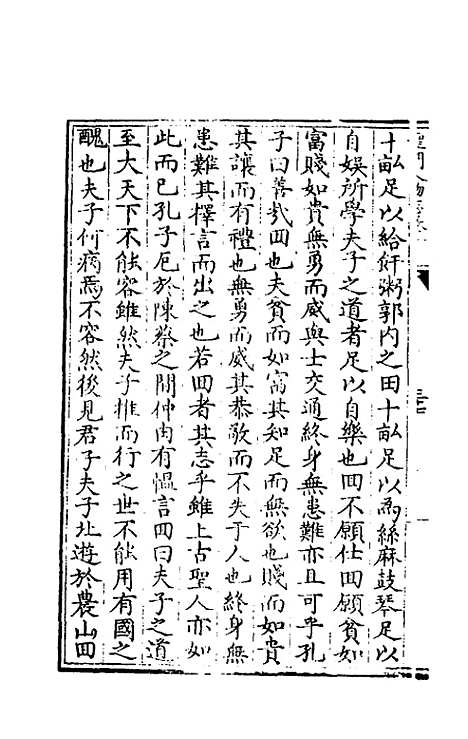 十畝足以給飦粥郭内之田十畝足以為絲麻鼓琴足以
自娛所學夫子之道者足以自樂也回不願仕回願貧如
富賤如貴無勇而威與士交通終身無患難亦且可乎孔
子曰善哉回也夫貧而如富其知足而無欲也賤而如貴
其讓而有禮也無勇而威其恭敬而不失于人也終身無
患難其擇言而出之也若回者其志乎雖上古聖人亦如
此而已孔子厄於陳蔡之間仲由有愠言回曰夫子之道
至大天下不能容雖然夫子推而行之世不能用有國之
醜也夫子何病焉不容然後見君子夫子北遊於農山回